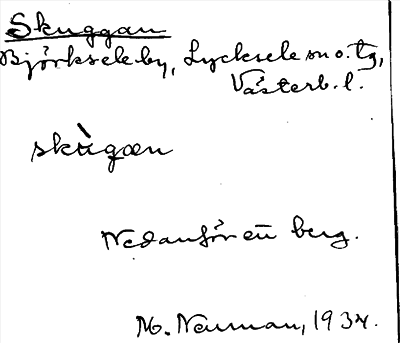 Skuggan
Björksele by, Lycksele sn o. tg,
Västerb. l.
skùgæn
Nedanför en berg.
M. Neuman, 1934.